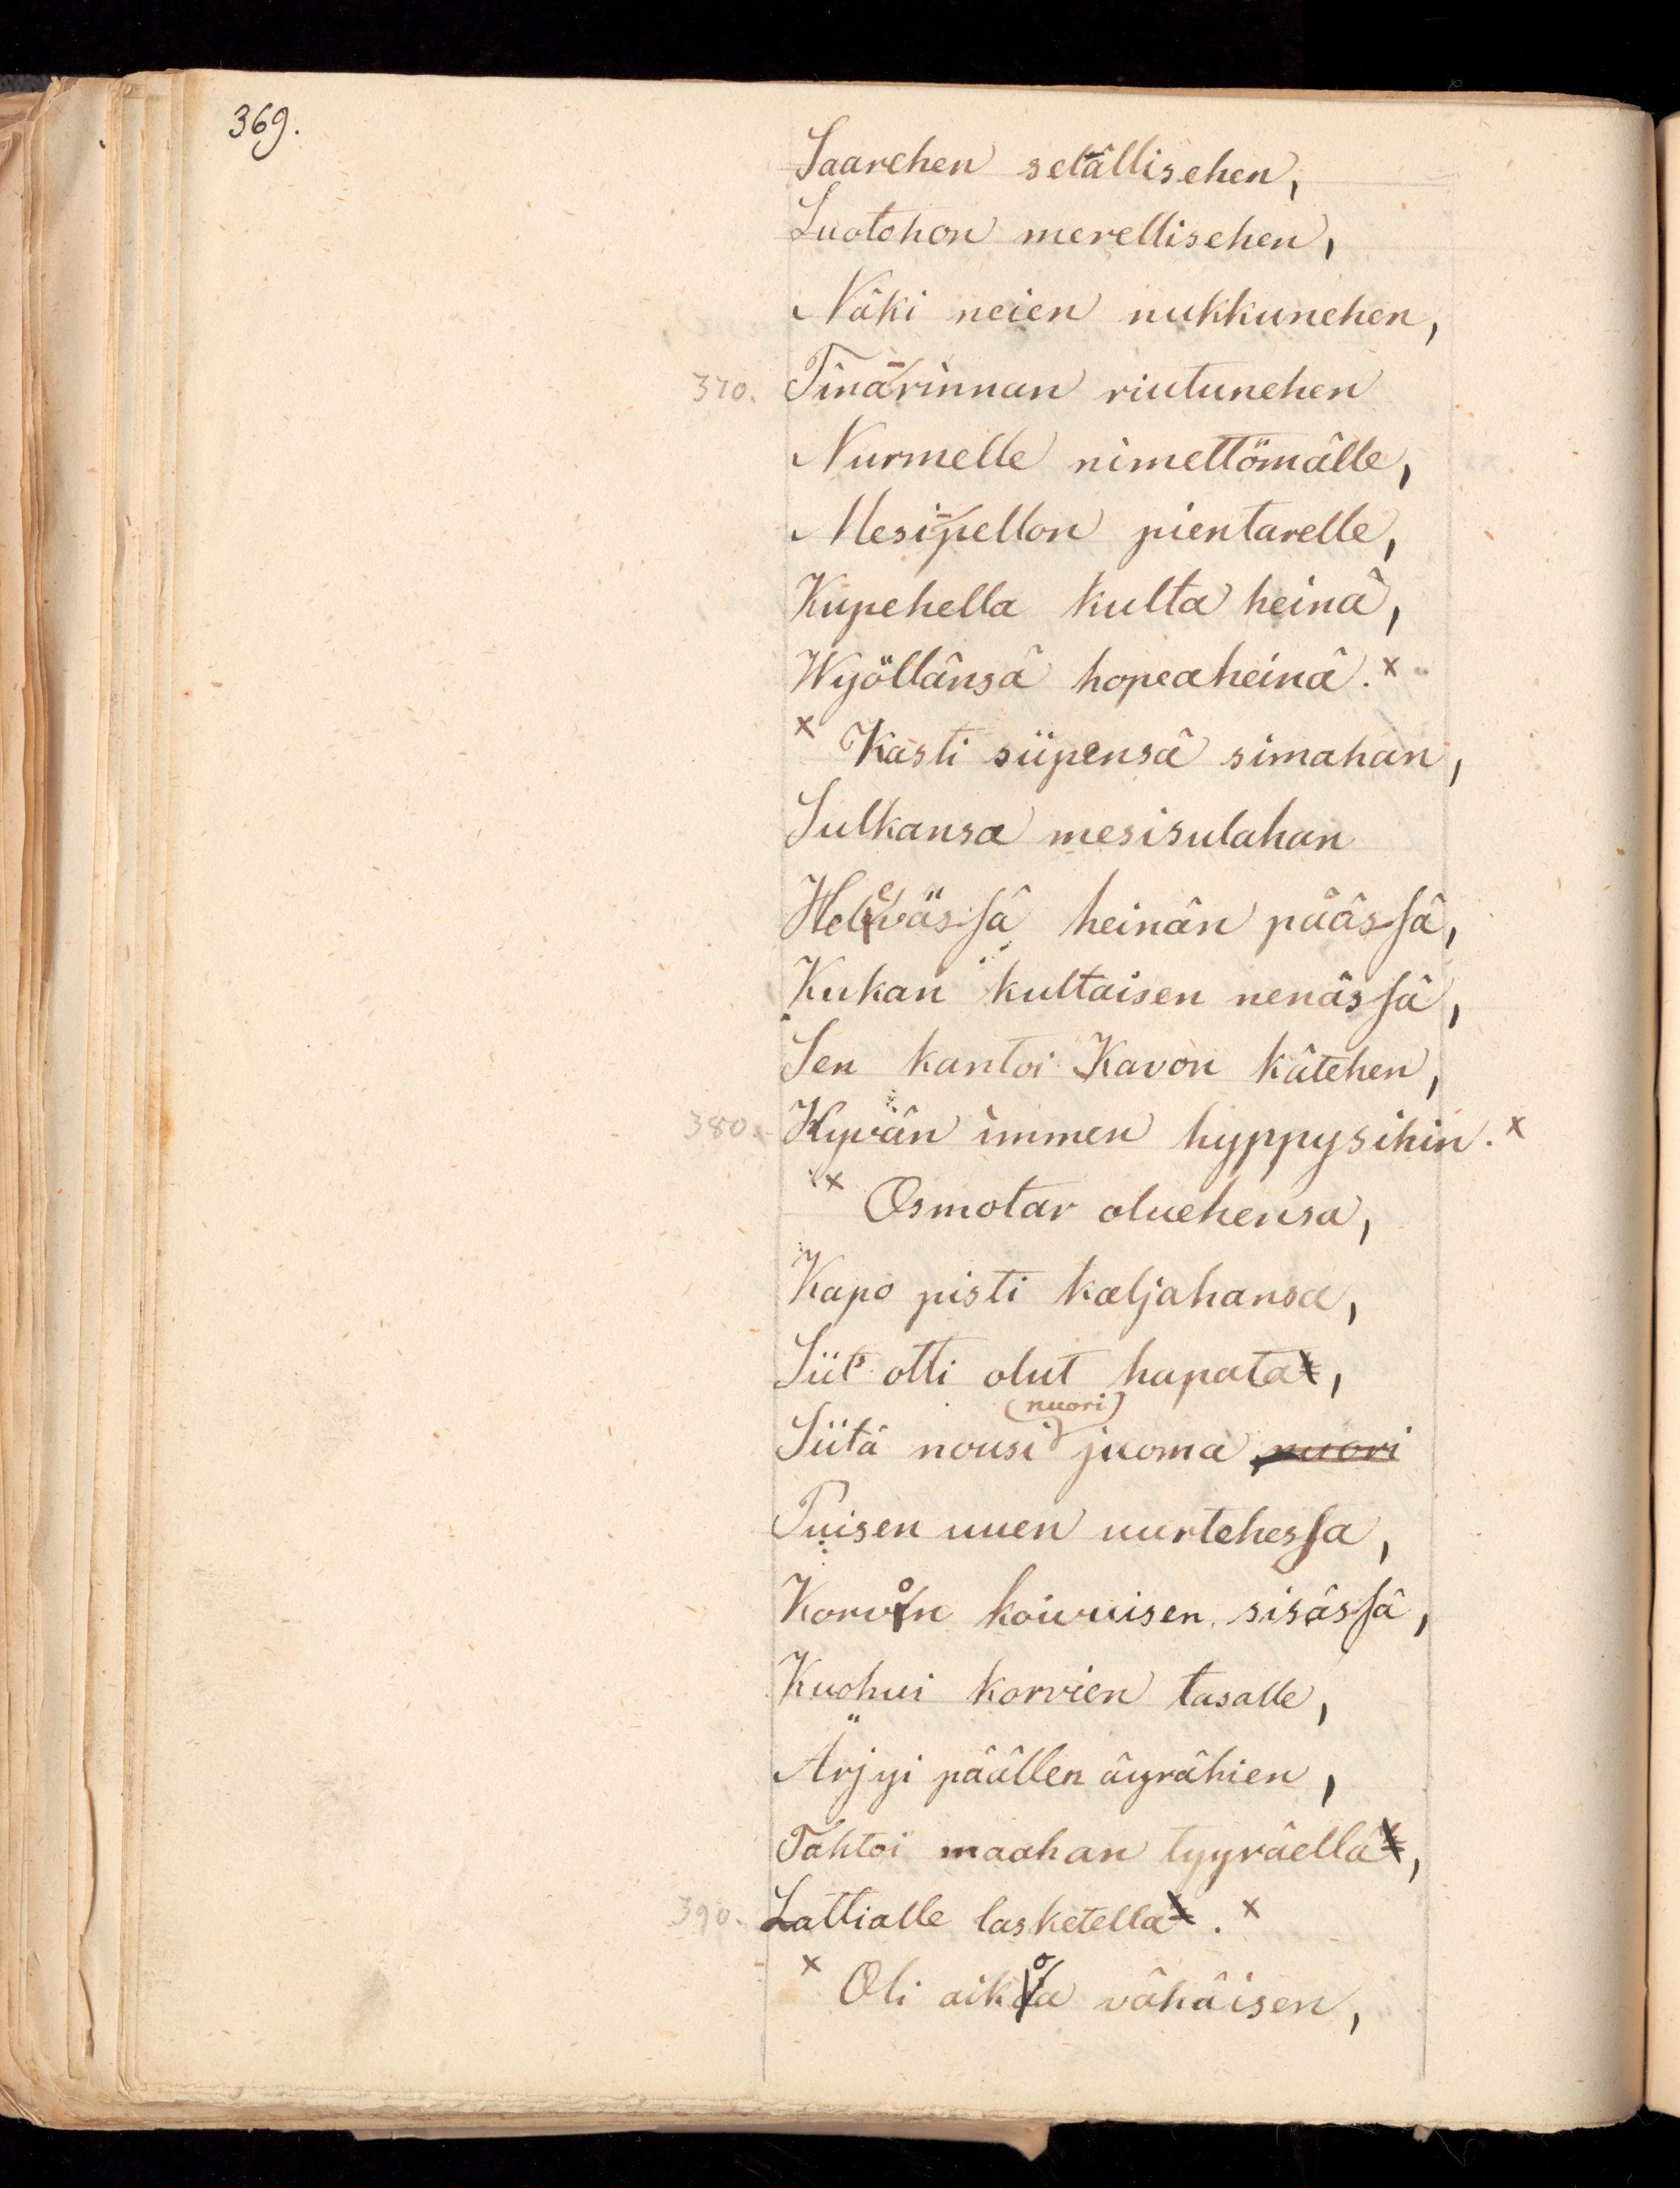 369.
Saarehen selällisehen,
Luotohon merellisehen,
Näki neien nukkunehen,
370. Tina-rinnan riutunehen
Nurmelle nimettömälle,
Mesi-pellon pientarelle,
Kupehella kulta heinä,
Wyöllänsä hopeaheinä. x
x Kasti siipensä simahan,
Sulkansa mesisulahan
Helevässä heinän päässä,
Kukan kultaisen nenässä,
Sen kantoi Kavon kätehen,
380. Hyvän immen hyppysihin. x
x Osmotar oluehensa,
Kapo pisti kaljahansa,
Siit' otti olut hapata,
(nuori)
Siitä nousi juoma nuori
Puisen uuen uurtehessa,
Korvon koivuisen sisässä,
Kuohui korvien tasalle,
Ärjyi päällen äyrähien,
Tahtoi maahan tyyräellä,
390. Lattialle lasketella. x
x Oli aikoa vähäisen,